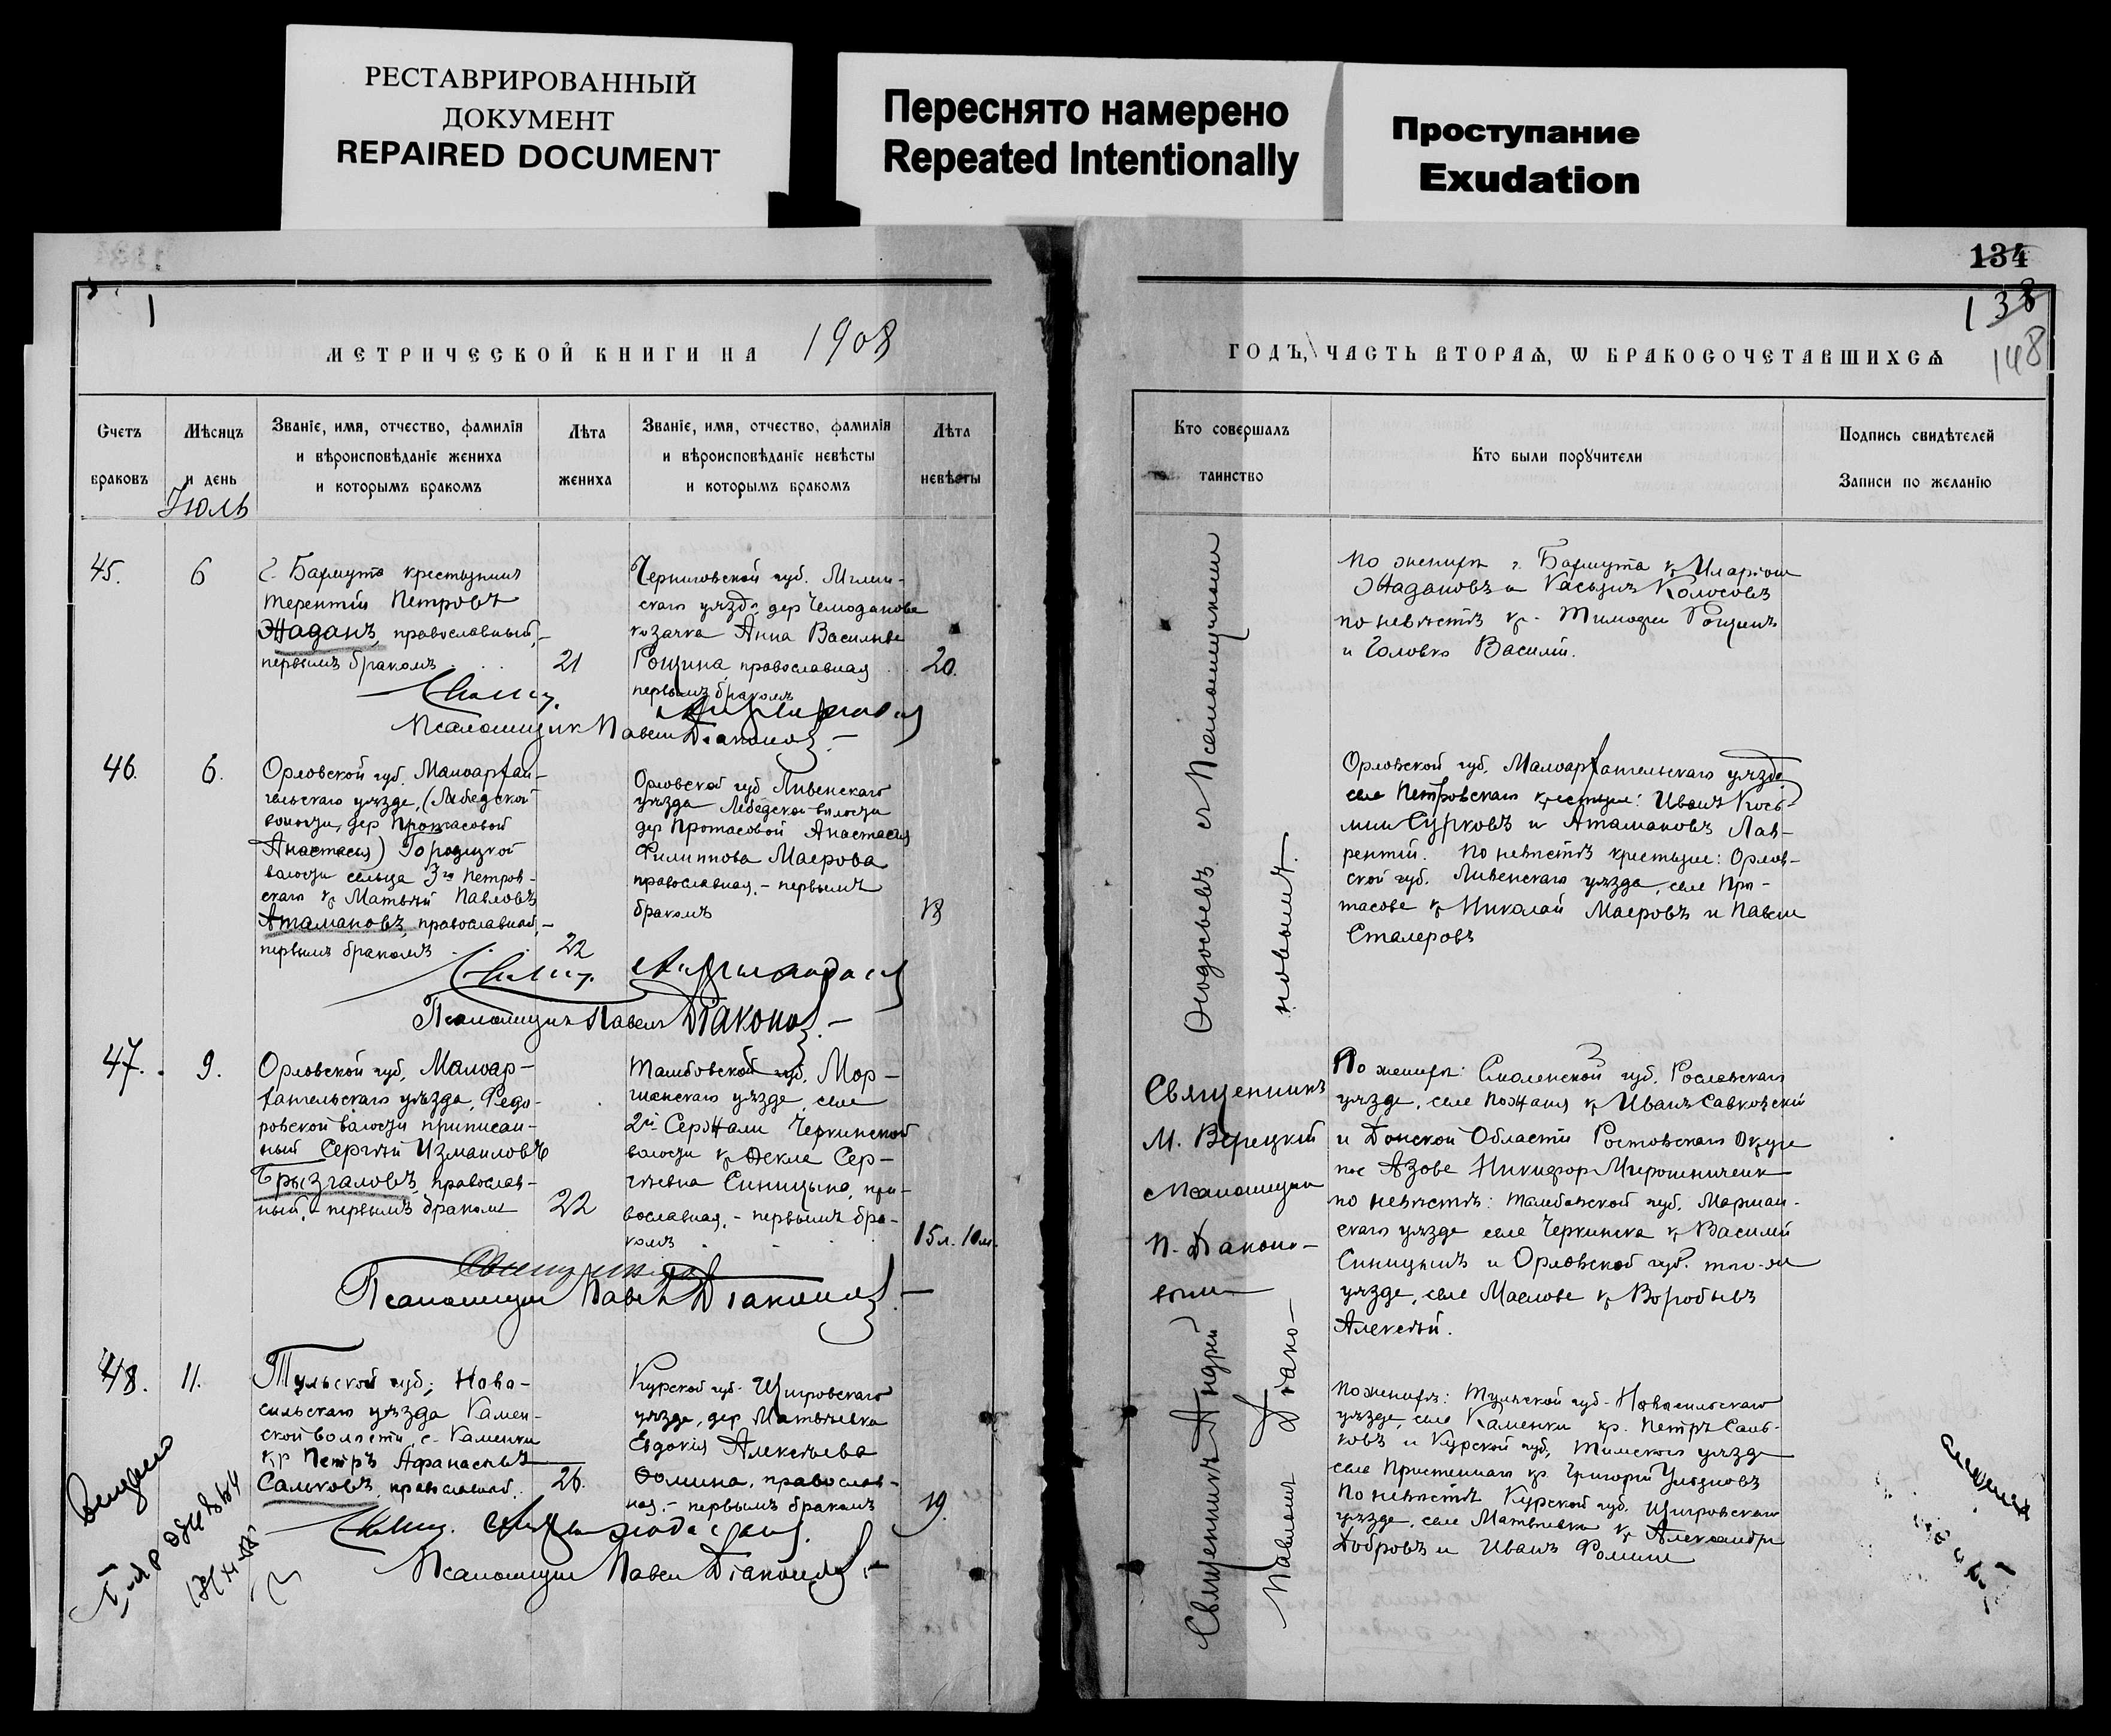 РЕСТАВРИРОВАННЫЙ
ДОКУМЕНТ
REPAIRED DOCUMENT
Переснято намерено
Repeated Intentionally
Проступание
Exudation
134
138
148
1
МЕТРИЧЕСКОЙ КНИГИ НА 1908
ГОДЪ, ЧАСТЬ ВТОРАѦ, Ѡ БРАКОСОЧЕТАВШИХСѦ
Счетъ
браковъ
Мѣсяцъ
и день
Іюль
Званіе, имя, отчество, фамилія
и вѣроисповѣданіе жениха
и которымъ бракомъ
Лѣта
жениха
Званіе, имя, отчество, фамилія
и вѣроисповѣданіе невѣсты
и которымъ бракомъ
Лѣта
невѣсты
Кто совершалъ
таинство
Кто были порꙋчители
Подпись свидѣтелей
Записи по желанію
45.
6
г. Бахмута крестьянинъ
Терентій Петровъ
Жаданъ, православный,
первымъ бракомъ
21
Черниговской губ. Мглин-
скаго уѣзда, дер Чемоданова
козачка Анна Васильева
Рощина, православная
первымъ бракомъ
20.
Псаломщик Павелъ Діаконов
По женихѣ г. Бахмута кр Иларіон
Жадановъ и Касьянъ Колосовъ
по невѣстѣ кр. Тимофей Рощинъ
и Головко Василій.
46.
6.
Орловской губ. Малоархан-
гельскаго уѣзда, (Лебедской
волости, дер Протасовой
Анастасия) Городецкой
волости сельца 3го Петров-
скаго кр Матвѣй Павловъ
Атамановъ, православный,
первымъ бракомъ
22
Орловской губ Ливенскаго
уѣзда Лебедской волости
дер Протасовой Анастасія
Филиппова Маерова
православная, - первымъ
бракомъ
18
Псаломщикъ Павелъ Діаконов
Орловской губ. Малоархангельскаго уѣзда
села Петровскаго крестьяне: Иванъ Косъ-
мин Сурковъ и Атамановъ Лав-
рентій. По невѣстѣ крестьяне: Орлов-
ской губ. Ливенскаго уѣзда, села Про-
тасова кр Николай Маеровъ и Павел
Сталеровъ
Ѳеодосьевъ съ Псаломщикомъ
новымъ.
47.
9.
Орловской губ, Малоар-
хангельскаго уѣзда, Федо-
ровской волости приписан-
ный Сергѣй Измаиловъ
Брызгаловъ, православ-
ный, - первымъ бракомъ
22
Тамбовской губ. Мор-
шанскаго уѣзда, села
2й Сержали Черкинской
волости кр Ѳекла Сер-
гѣевна Синицына, пра-
вославная, - первымъ бра-
комъ
15л. 10м.
Псаломщик Павелъ Діаконов
Священникъ
М. Верецкій
с Псаломщик
П. Діаконо-
вым
По женихѣ: Смоленской губ. Рославскаго
уѣзда, села Пожаня кр Иванъ Савковскій
и Донской Области Ростовскаго Округа
пос Азова Никифор Мирошниченк
по невѣстѣ: Тамбовской губ. Моршан-
скаго уѣзда села Черкинска кр Василій
Синицынъ и Орловской губ. того-же
уѣзда, села Маслова кр Воробьевъ
Алексѣй.
48.
11.
Тульской губ; Ново-
сильскаго уѣзда Камен-
ской волости, с. Каменки
кр Петръ Афанасьевъ
Сальковъ, православный,
26.
Курской губ. Щигровскаго
уѣзда, дер Матвѣевка
Евдокія Алексѣева
Ѳомина, православ-
ная, - первымъ бракомъ
19.
Псаломщик Павел Діаконов
Священникъ Андрей
Павломъ Діако-
По женихѣ: Тульской губ. Новосильскаго
уѣзда, села Каменки кр. Петръ Саль-
ковъ и Курской губ, Тимскаго уѣзда
села Пристеннаго кр. Григорій Ульяновъ
По невѣстѣ Курской губ, Щигровскаго
уѣзда, села Матвѣевки кр Александр
Добровъ и Иванъ Фомин